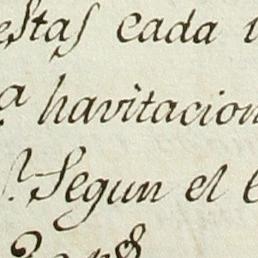 estas cada
havitacion
Segun el